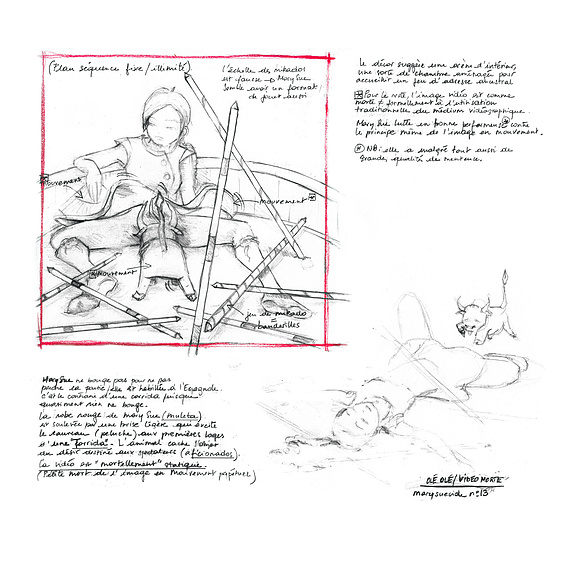 (Plan séquence fixe/illimité)
l'échelle des mikados
est fausse → Mary Sue
semble avoir un format
de jouet aussi
mouvement
mouvement
mouvement
jeu de mikado
=
banderilles
Le décor suggère une arène d'intérieur,
une sorte de chambre aménagée pour
accueillir un jeu d'adresse ancestral
Pour le reste, l'image vidéo est comme
morte ≠ formellement à l'utilisation
traditionnelle du médium vidéographique.
Mary Sue lutte en bonne performeuse contre
le principe même de l'image en mouvement.
NB: elle a malgré tout aussi de
grandes qualités de menteuse.
Mary Sue ne bouge pas pour ne pas
perdre la partie/elle est habillée à l'Espagnole.
c'est le contraire d'une corrida puisque
quasiment rien ne bouge.
La robe rouge de Mary Sue (muleta)
est soulevée par une brise légère qui excite
le taureau (peluche) aux premières loges
d'une "corrida". L'animal cache l'objet
du désir destiné aux spectateurs (aficionados).
La vidéo est "mortellement" statique.
(Petite mort de l'image en mouvement perpétuel)
OLÉ OLÉ/VIDÉO MORTE
marysuecide n°13